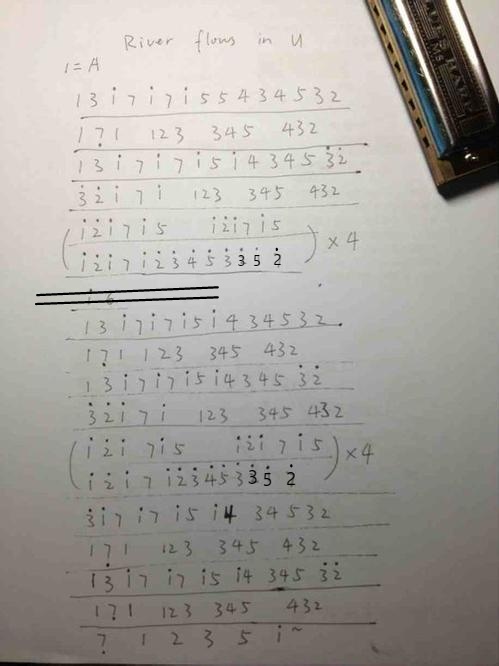 River flows in U
1=A
1 3 i 7 i 7 i 5 5 4 3 4 5 3 2
1 7̣ 1 1 2 3 3 4 5 4 3 2
1 3 i 7 i 7 i 5 i 4 3 4 5 3̇ 2̇
3̇ 2̇ i 7 i 1 2 3 3 4 5 4 3 2
( i 2̇ i 7 i 5 i 2̇ i 7 i 5
i 2̇ i 7 i 2̇ 3̇ 4̇ 5̇ 3̇ 3̇ 5̇ 2̇ ) ×4
1 3 i 7 i 7 i 5 i 4 3 4 5 3 2.
1 7̣ 1 1 2 3 3 4 5 4 3 2
1 3 i 7 i 7 i 5 i 4 3 4 5 3̇ 2̇
3̇ 2̇ i 7 i 1 2 3 3 4 5 4 3 2
( i 2̇ i 7 i 5 i 2̇ i 7 i 5
i 2̇ i 7 i 2̇ 3̇ 4̇ 5̇ 3̇ 3̇ 5̇ 2̇ ) ×4
3̇ i 7 i 7 i 5 i 4 3 4 5 3 2
1 7 1 1 2 3 3 4 5 4 3 2
1 3 i 7 i 7 i 5 i 4 3 4 5 3̇ 2̇
1 7̣ 1 1 2 3 3 4 5 4 3 2
7̣ 1 2 3 5 i ~
BLUES HARP
MS